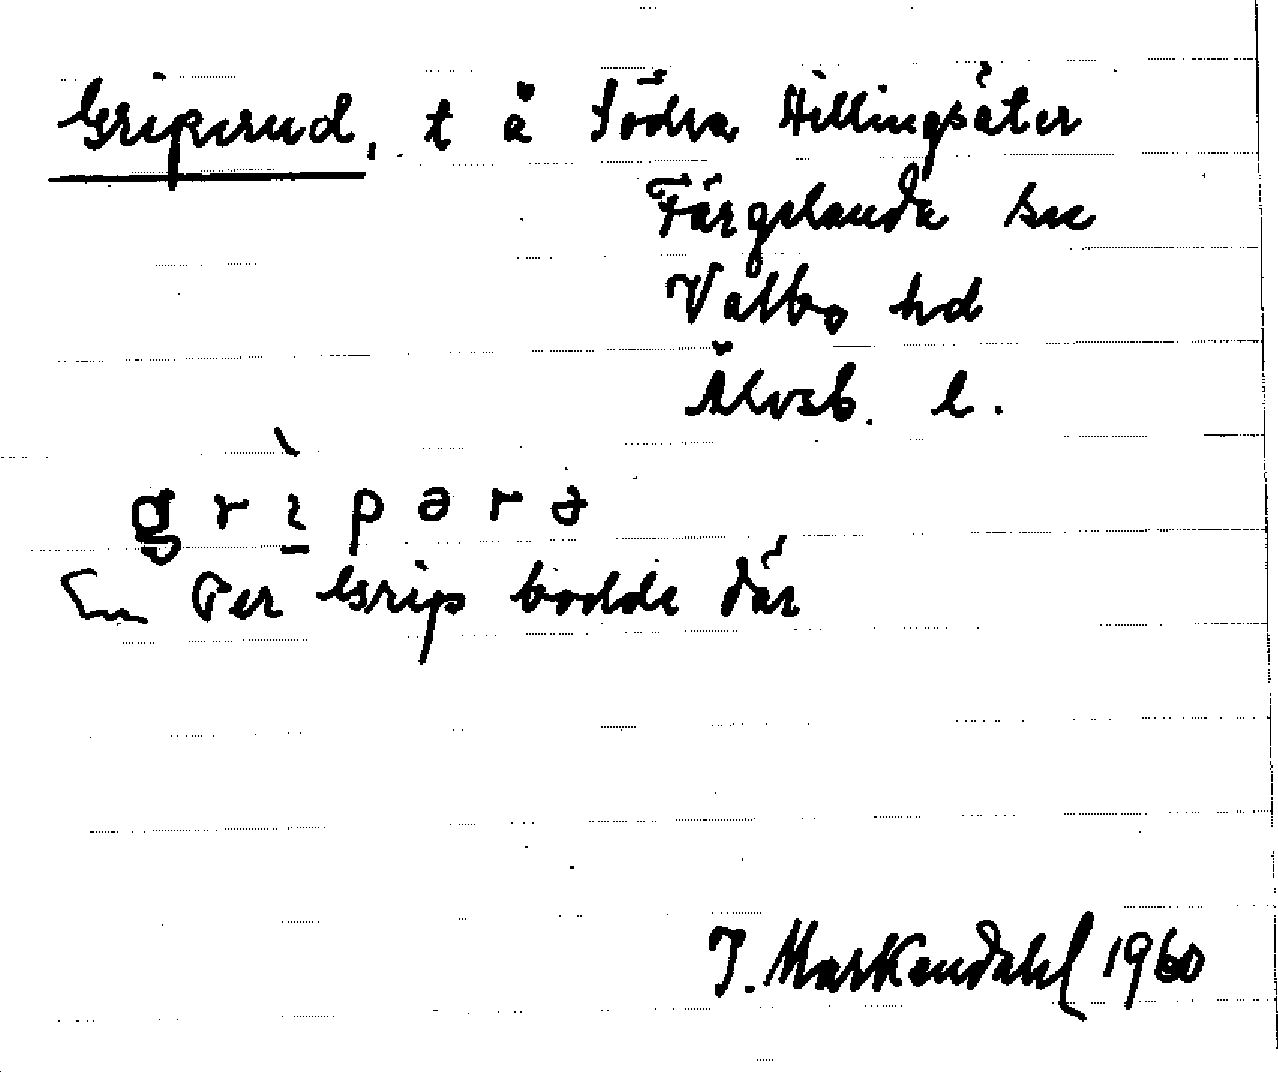 Griperud, t å Södra Hillingsäter
Färgelanda sn
Valbo hd
Älvsb. l.
grìpərə
Per Grip bodde där
I. Markendahl 1960